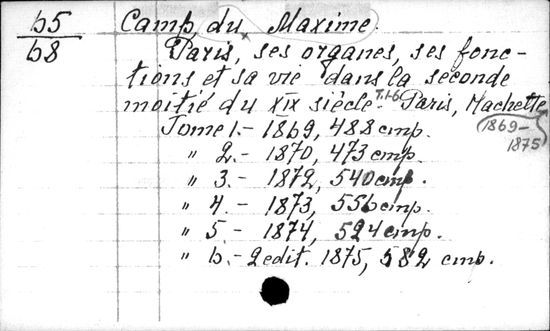 б5
б8
Camp, du, Maxime.
Paris, ses organes, ses fonc-
tions et sa vie dans la seconde
moitié du XIX siècle. T.1-6 Paris, Hachette
1869-
1875
Tome 1.- 1869, 488 cmp.
" 2.- 1870, 473 cmp.
" 3.- 1872, 540 cmp.
" 4.- 1873, 556 cmp.
" 5- 1874, 524 cmp.
" 6.- 2 edit. 1875, 582 cmp.